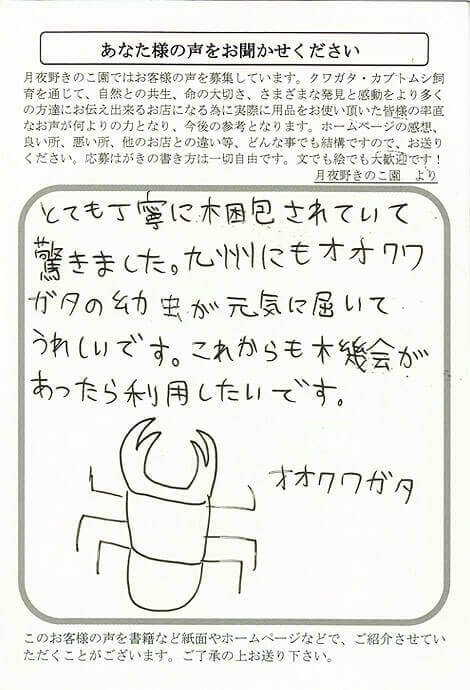 あなた様の声をお聞かせください
月夜野きのこ園ではお客様の声を募集しています。クワガタ・カブトムシ飼
育を通じて、自然との共生、命の大切さ、さまざまな発見と感動をより多く
の方達にお伝え出来るお店になる為に実際に用品をお使い頂いた皆様の率直
なお声が何よりの力となり、今後の参考となります。ホームページの感想、
良い所、悪い所、他のお店との違い等、どんな事でも結構ですので、お送り
ください。応募はがきの書き方は一切自由です。文でも絵でも大歓迎です！
月夜野きのこ園　より
とても丁寧に梱包されていて
驚きました。九州にもオオクワ
ガタの幼虫が元気に届いて
うれしいです。これからも機会が
あったら利用したいです。
オオクワガタ
このお客様の声を書籍など紙面やホームページなどで、ご紹介させてい
ただくことがございます。ご了承の上お送り下さい。